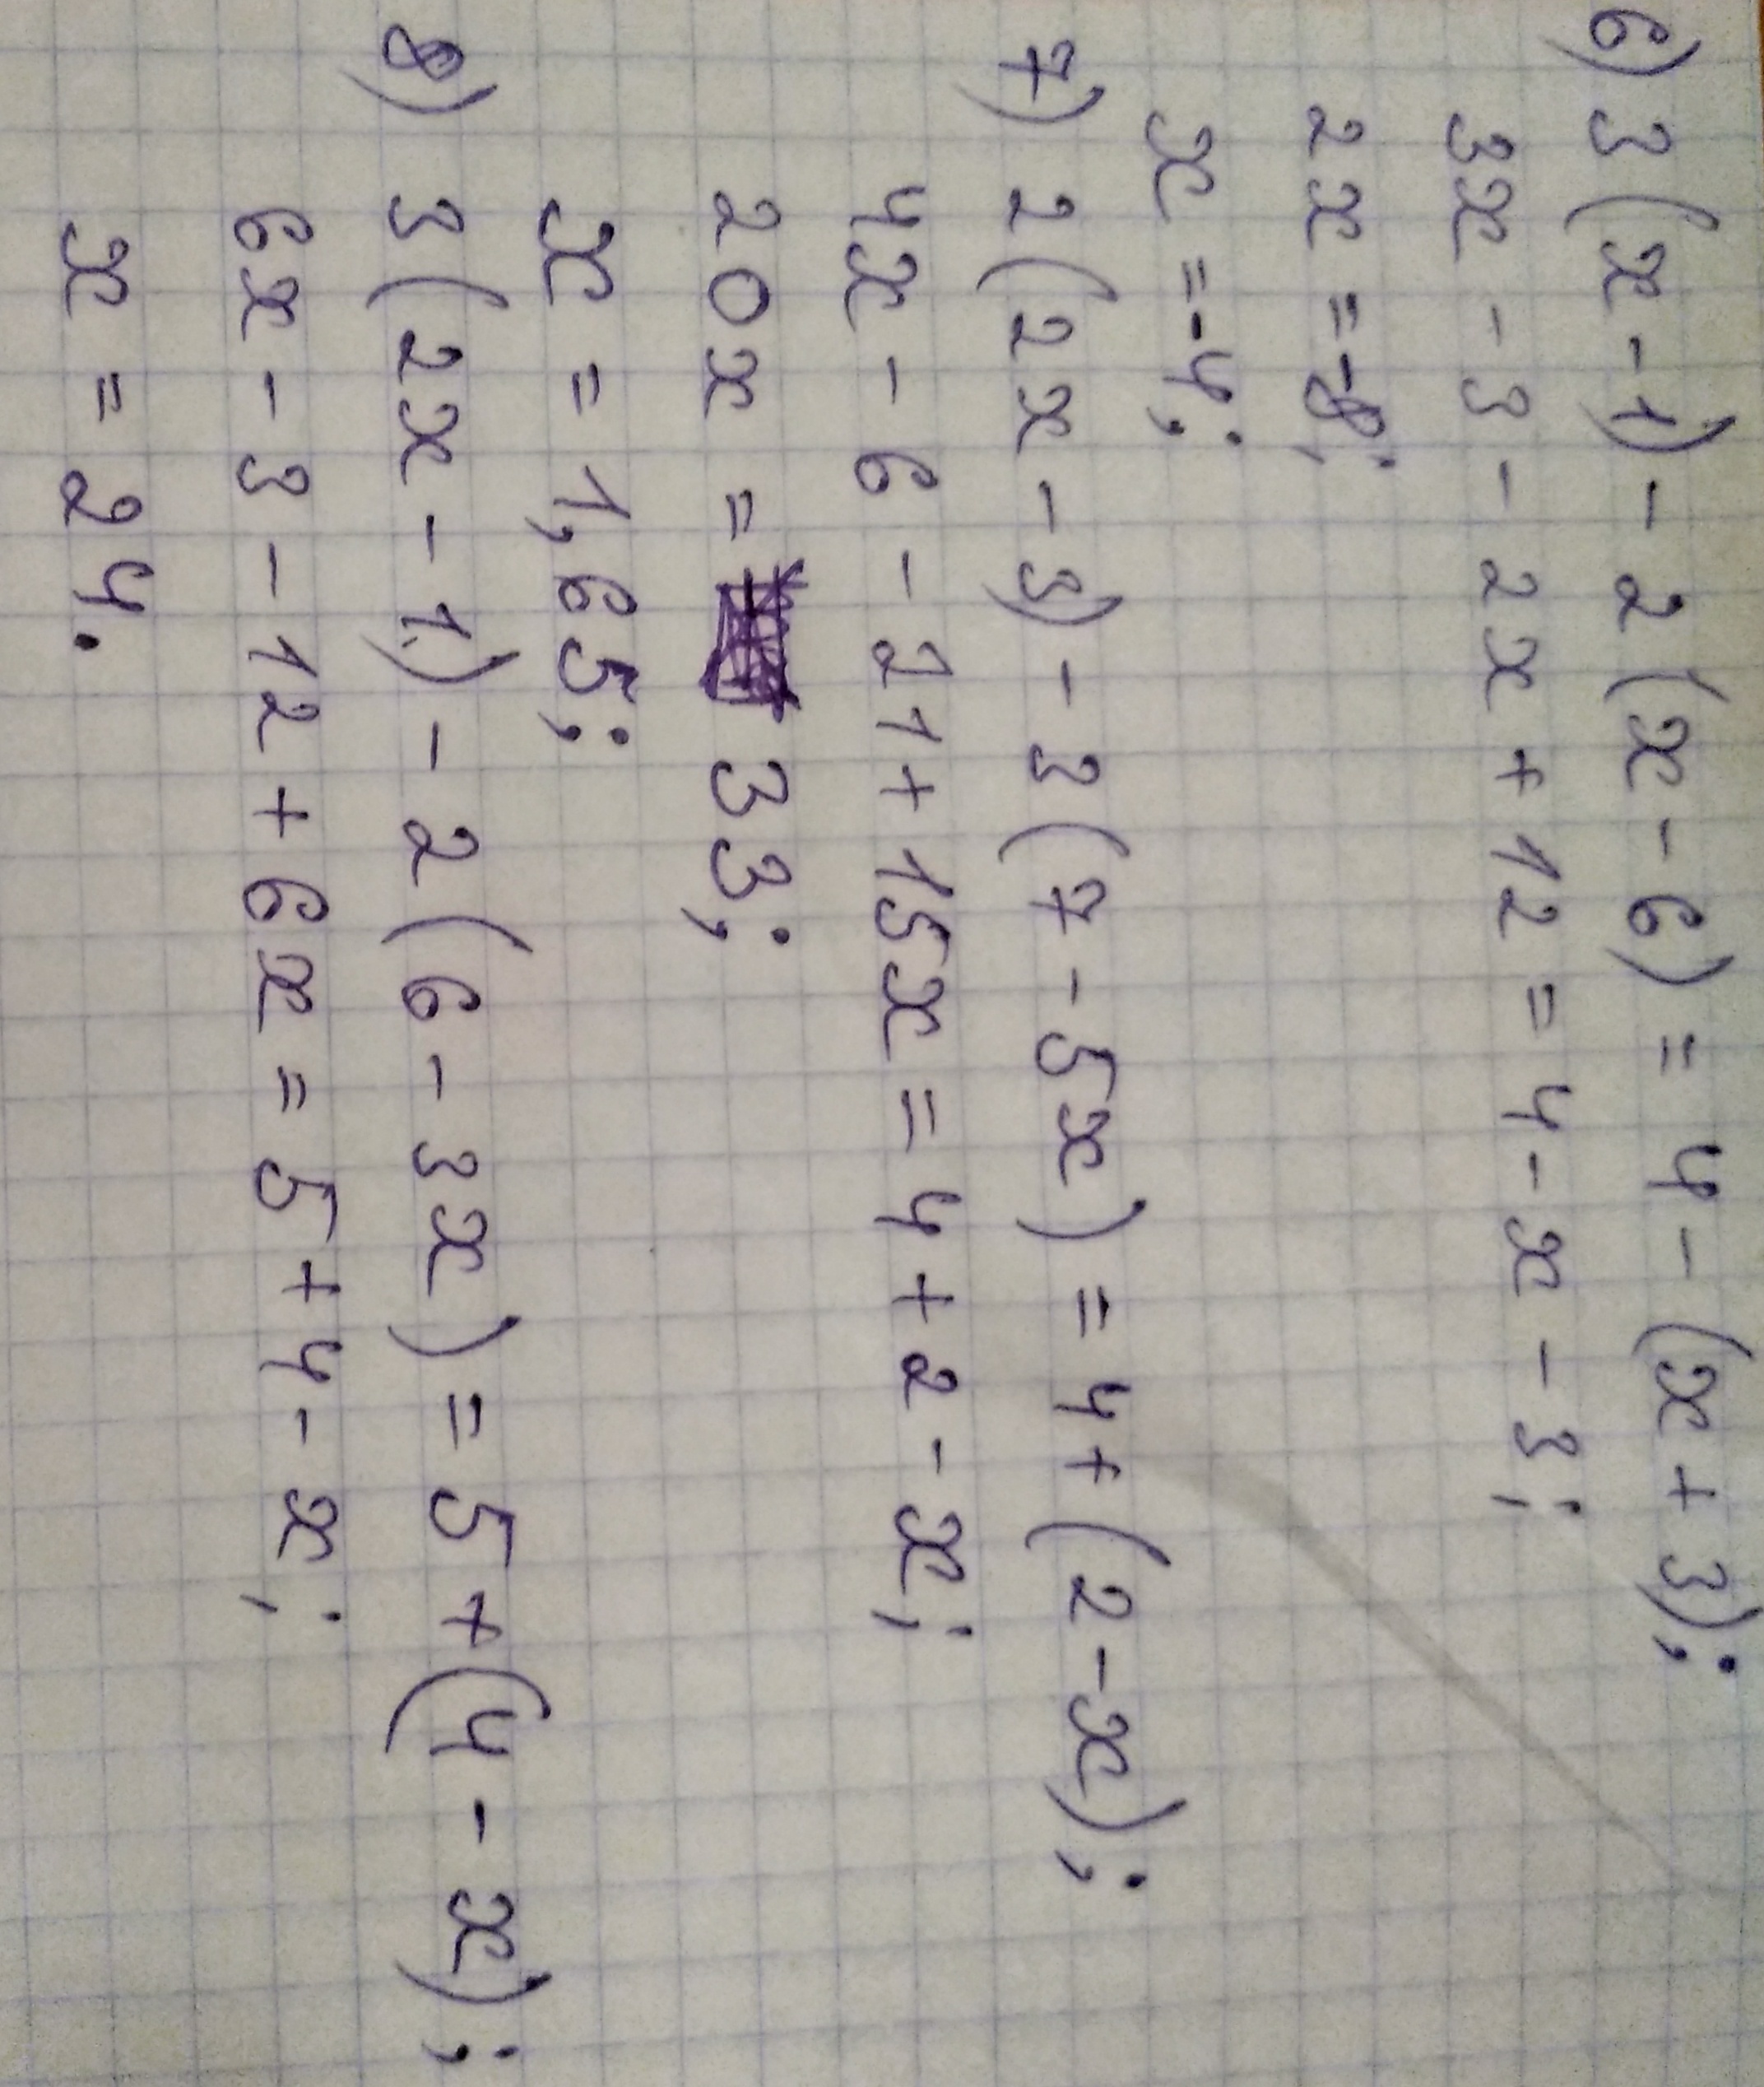 6) 3(x-1)-2(x-6)=4-(x+3);
3x-3-2x+12=4-x-3;
2x=-8;
x=-4;
7) 2(2x-3)-3(7-5x)=4+(2-x);
4x-6-21+15x=4+2-x;
20x=33;
x=1,65;
8) 3(2x-1)-2(6-3x)=5+(4-x);
6x-3-12+6x=5+4-x;
x=24.